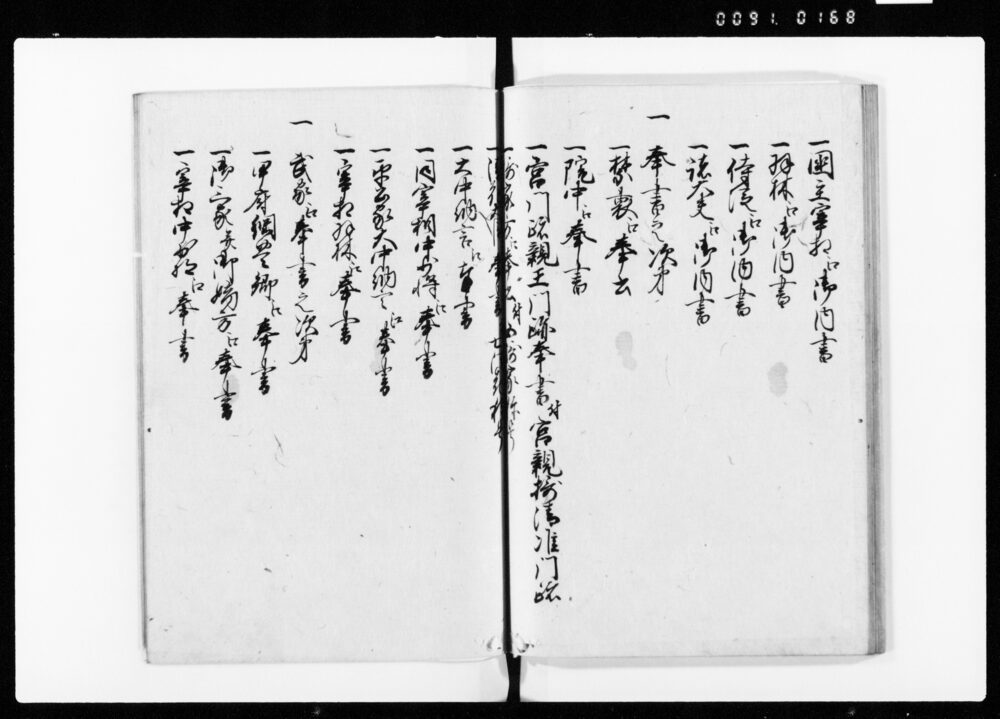 0091.0168
一国主宰相江御内書
一羽林江御内書
一侍従江御内書
一諸大夫江御内書
一
奉書之次第
一禁裏江奉書
一院中江奉書
一宮門跡親王門跡奉書付宮親摂清准門跡
一摂家方江奉書付
一清花
一大中納言江奉書
一同宰相中将江奉書
一平公家大中納言江奉書
一宰相羽林江奉書
一
武家江奉書之次第
一甲府綱豊卿江奉書
一御三家并御嫡方江奉書
一宰相中将江奉書